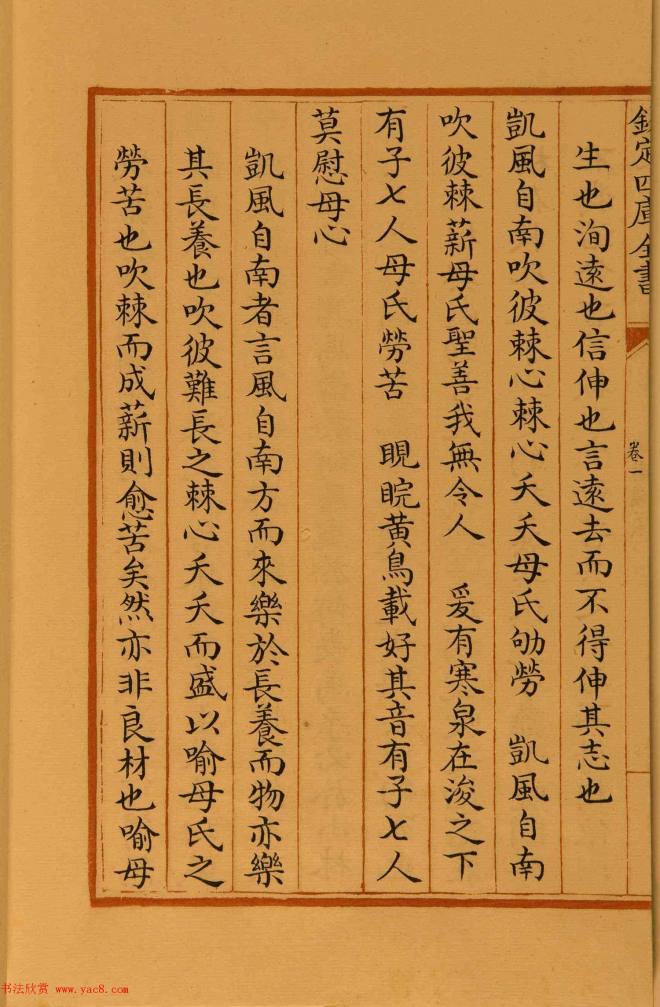 欽定四庫全書
卷一
生也洵遠也信伸也言遠去而不得伸其志也
凱風自南吹彼棘心棘心夭夭母氏劬勞 凱風自南
吹彼棘薪母氏聖善我無令人 爰有寒泉在浚之下
有子七人母氏勞苦 睍睆黃鳥載好其音有子七人
莫慰母心
凱風自南者言風自南方而來樂於長養而物亦樂
其長養也吹彼難長之棘心夭夭而盛以喻母氏之
勞苦也吹棘而成薪則愈苦矣然亦非良材也喻母
书法欣赏 www.yac8.com